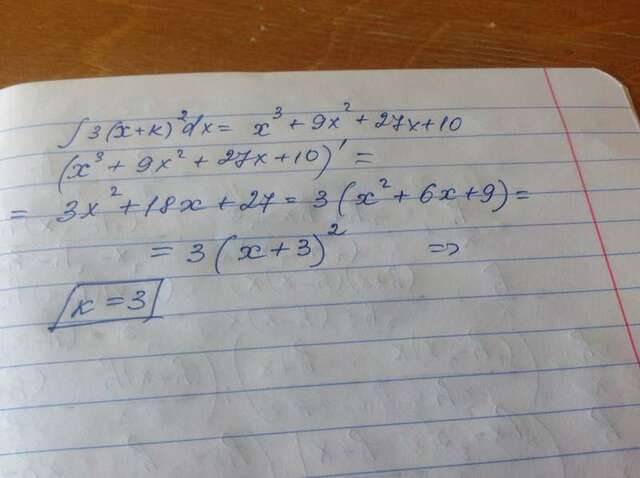 ∫3(x+к)²dx= x³+9x²+27x+10
(x³+9x²+27x+10)' =
= 3x²+18x+27 = 3(x²+6x+9)=
= 3(x+3)² =>
к=3